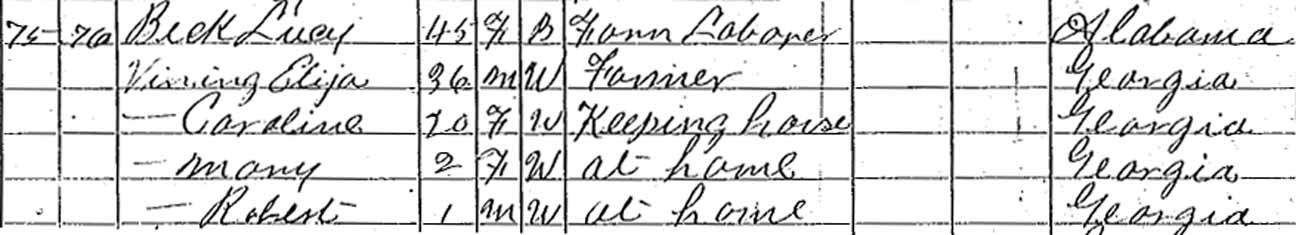 75 76 Beck Lucy 45 F B Farm Laborer Alabama
Vining Elija 36 M W Farmer Georgia
— Caroline 20 F W Keeping house Georgia
— Mary 2 F W at home Georgia
— Robert 1 M W at home Georgia